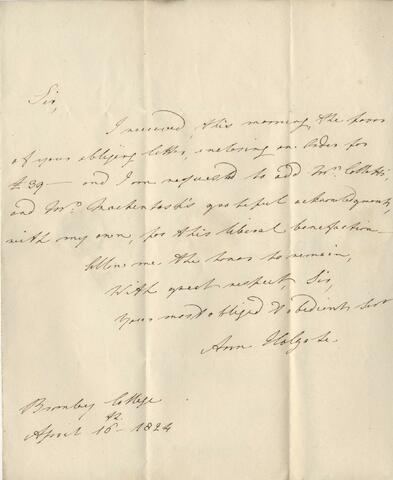 Sir,
I received, this morning, the favor
of your obliging letter, enclosing an Order for
£39 — and I am requested to add Mrs. Colletts,
and Mrs. Mackentosh's grateful acknowledgments,
with my own, for this liberal benefaction —
Allow me the honor to remain,
With great respect, Sir,
Your most obliged & obedient Sert
Ann Holgate.
Bromley College
April 16 - 1824